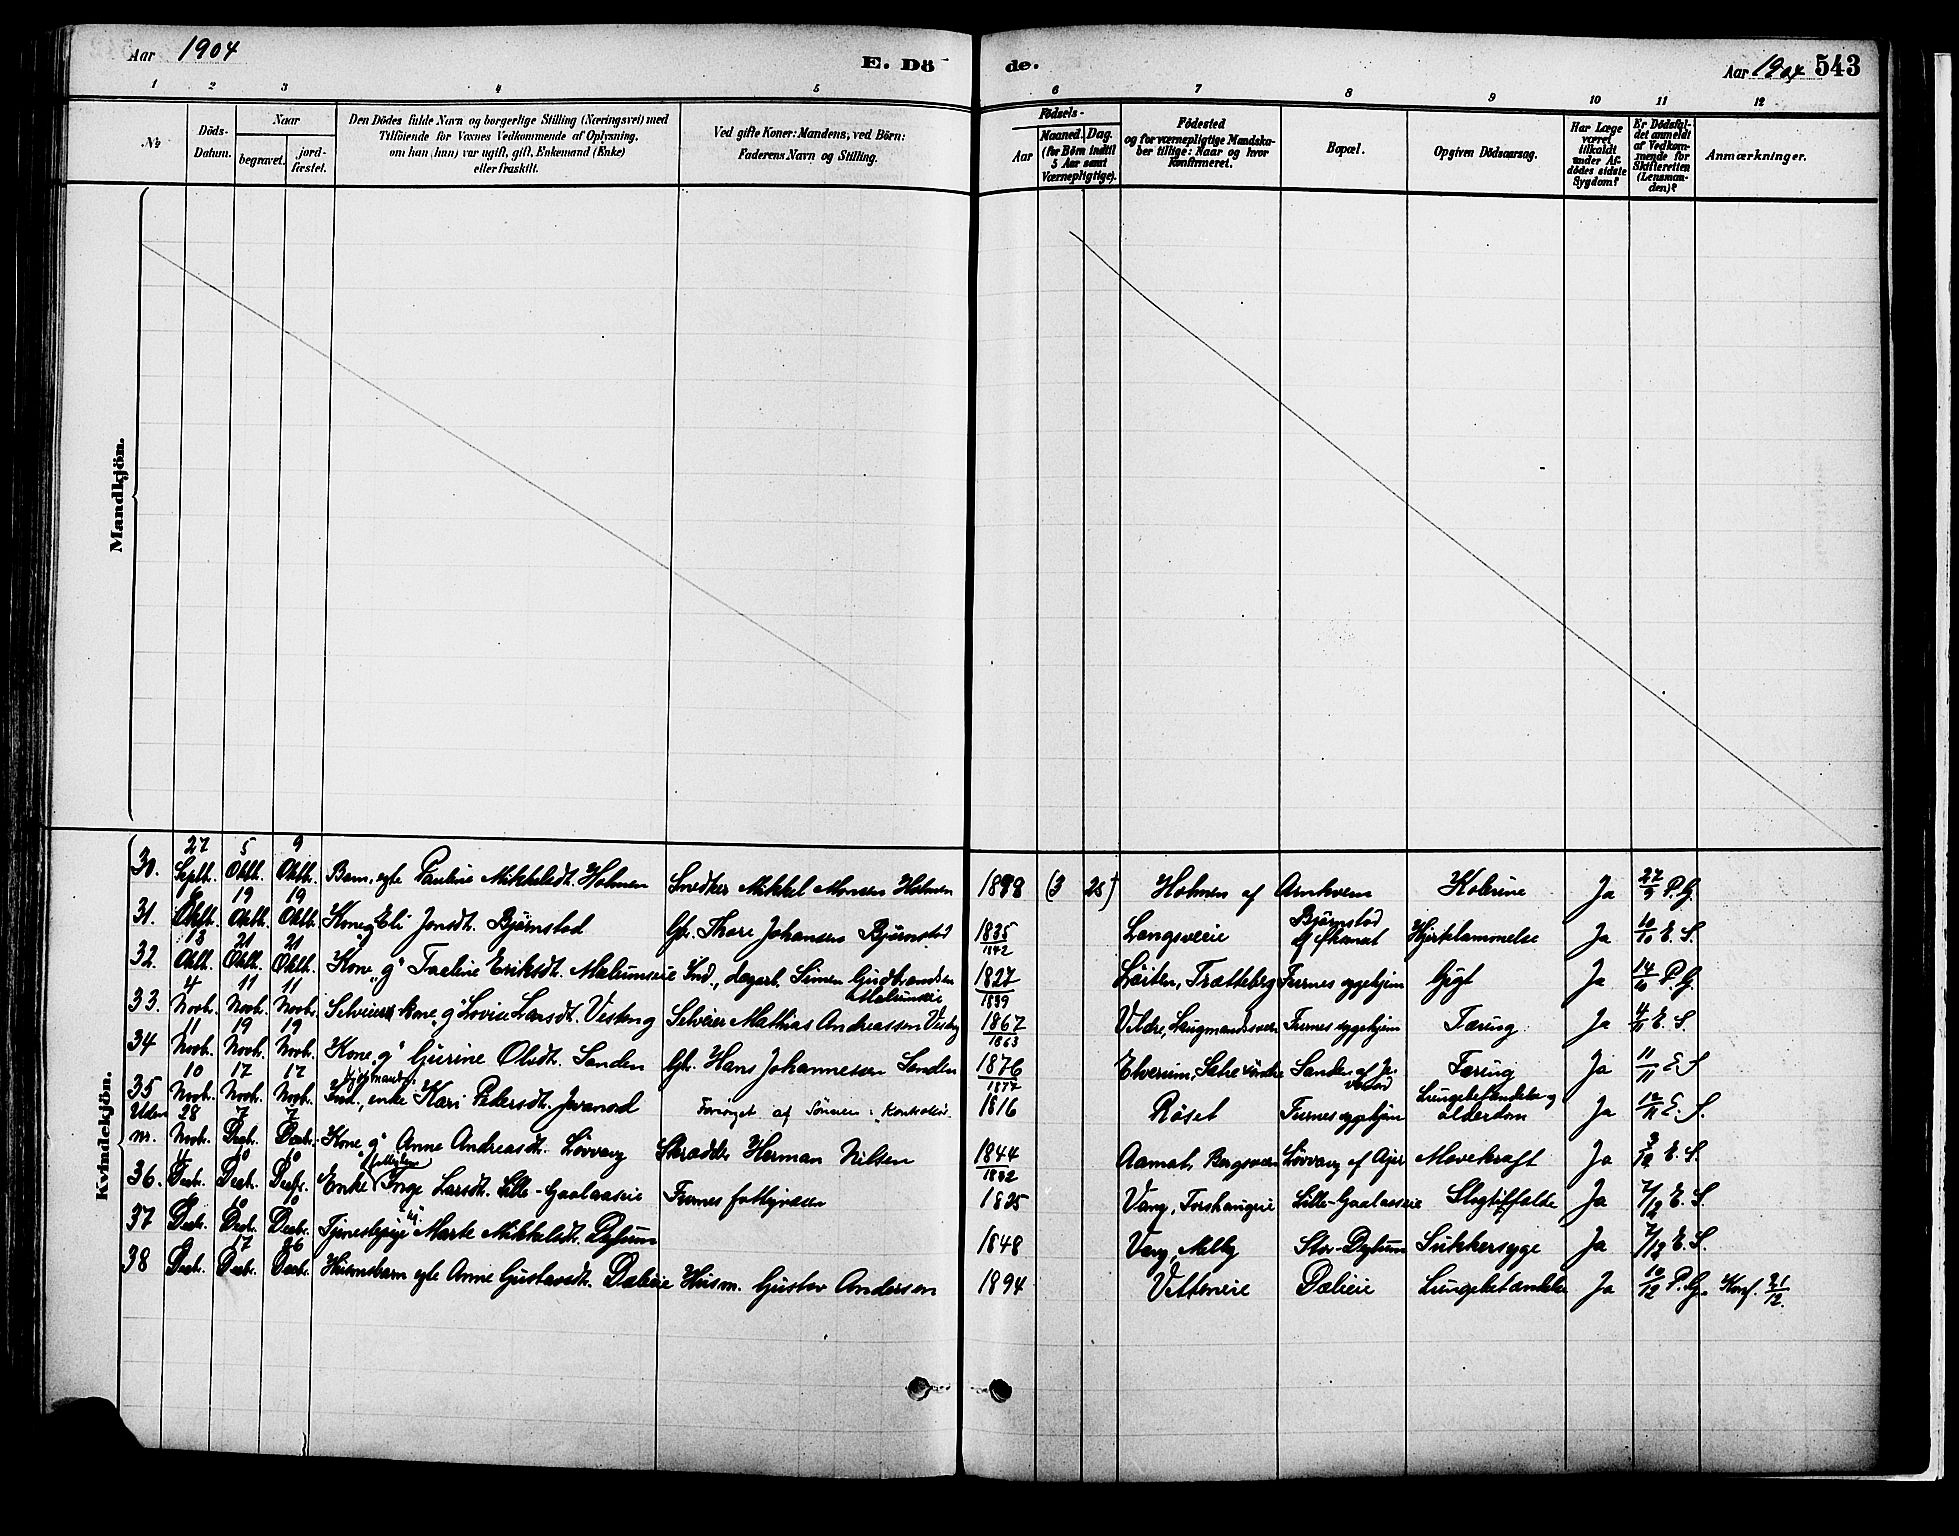 Aar 1904
E. Dö
de.
Aar 1904 543
1 2 3 4 5 6 7 8 9 10 11 12
No
Döds-Datum.
Naar
begravet.
jord-fæstet.
Den Dödes fulde Navn og borgerlige Stilling (Næringsvei) med Tilföiende for Voxnes Vedkommende af Oplysning, om han (hun) var ugift, gift, Enkemand (Enke) eller fraskilt.
Ved gifte Koner: Mandens, ved Börn: Faderens Navn og Stilling.
Födsels-
Aar
Maaned. Dag.
(for Börn indtil 5 Aar samt Værnepligtige).
Födested og for værnepligtige Mandskaber tillige: Naar og hvor Konfirmeret.
Bopæl.
Opgiven Dödsaarsag.
Har Læge været tilkaldt under Afdödes sidste Sygdom?
Er Dödsfaldet anmeldt af Vedkommende for Skifteretten (Lensmanden)?
Anmærkninger.
Mandkjön.
Kvindekjön.
30. 27 Septb. 5 Oktb. 9 Oktb. Barn, egte Pauline Mikkelsdt. Holmen Snedker Mikkel Monsen Holmen Holmen af Arnkvern Kolerine Ja 27/9 P. G.
31. 6 Oktb. 19 Oktb. 19 Oktb. Kone g Eli Jonsdt. Bjørnstad Thore Johansen Bjørnstad 1835 1842 Langsveeie Bjørnstad af Hjertelammelse Ja 10/10 E. S.
32. 13 Oktb. 21 Oktb. 21 Oktb. Kone "g" Eriksdt. Mælumseie Ind., dagarb. Simen Gudbrandsen Mælumseie 1827 1839 Løiten, Trætteberg Furnes sygehjem Gigt Ja 14/10 P. G.
33. 4 Novb. 11 Novb. 11 Novb. Selveiers kone "g" Lovise Larsdt. Visteng Selveier Mathias Andreassen Visteng 1867 1863 Furnes sygehjem Tæring Ja 4/11 E. S.
34 11 Novb. 19 Novb. 19 Novb. Kone "g" Gurine Olsdt. Sanden Hans Johannessen Sanden 1876 1877 Elverum, Sanden af Tæring Ja 11/11 E S
35 10 Novb. 17 Novb. 17 Novb. Ind., enke Kari Pedersdt. Forsørget af Sønnen 1816 Røset Furnes sygehjem Lungebetændelse og alderdom Ja 12/11 E. S.
Uden nr. 28 Novb. 7 Decb. 7 Decb. Kone "g" Anne Andreasdt. Løvvang Skrædder Herman Nilsen 1844 1842 Aamot, Løvvang af Ajer Mavekræft Ja 3/12 E. S.
36. 4 Decb. 10 Decb. 10 Decb. Enke Inge Larsdt. Lille-Gaalaaseie Furnes fattigvæsen 1825 Vang, Lille-Gaalaaseie Slagtilfælde Ja 7/12 E. S.
37 6 Decb. 10 Decb. 10 Decb. Tjenestepige Marte Mikkelsdt. Dylum 1848 Vang, Melby Stor-Dylum Sukkersyge Ja 7/12 E. S.
38 8 Decb. 17 Decb. 26 Decb. Husmsbarn egte Anne Gustavsdt. Dælieie Husm. Gustav Andersen 1894 Vetteneie Dælieie Lungebetændelse Ja 10/12 P. G. Konf. 21/12.